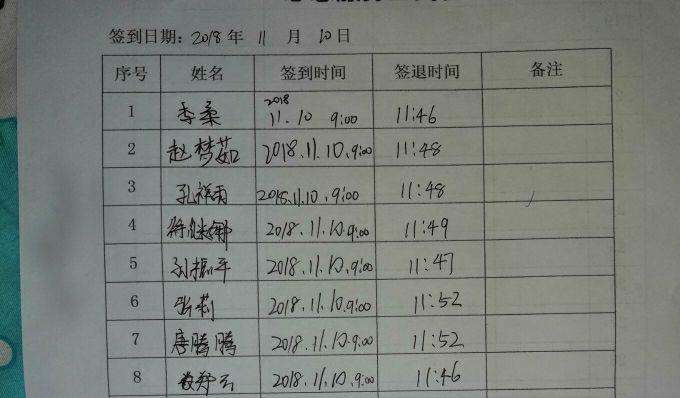 签到日期: 2018 年 11 月 10 日
序号 姓名 签到时间 签退时间 备注
1 李柔 2018 11.10 9:00 11:46
2 赵梦茹 2018.11.10.9:00 11:48
3 孔祥雨 2018.11.10.9:00 11:48
4 2018.11.10.9:00 11:49
5 孙振平 2018.11.10.9:00 11:47
6 张莉 2018.11.10.9:00 11:52
7 唐腾腾 2018.11.10.9:00 11:52
8 2018.11.10.9:00 11:46